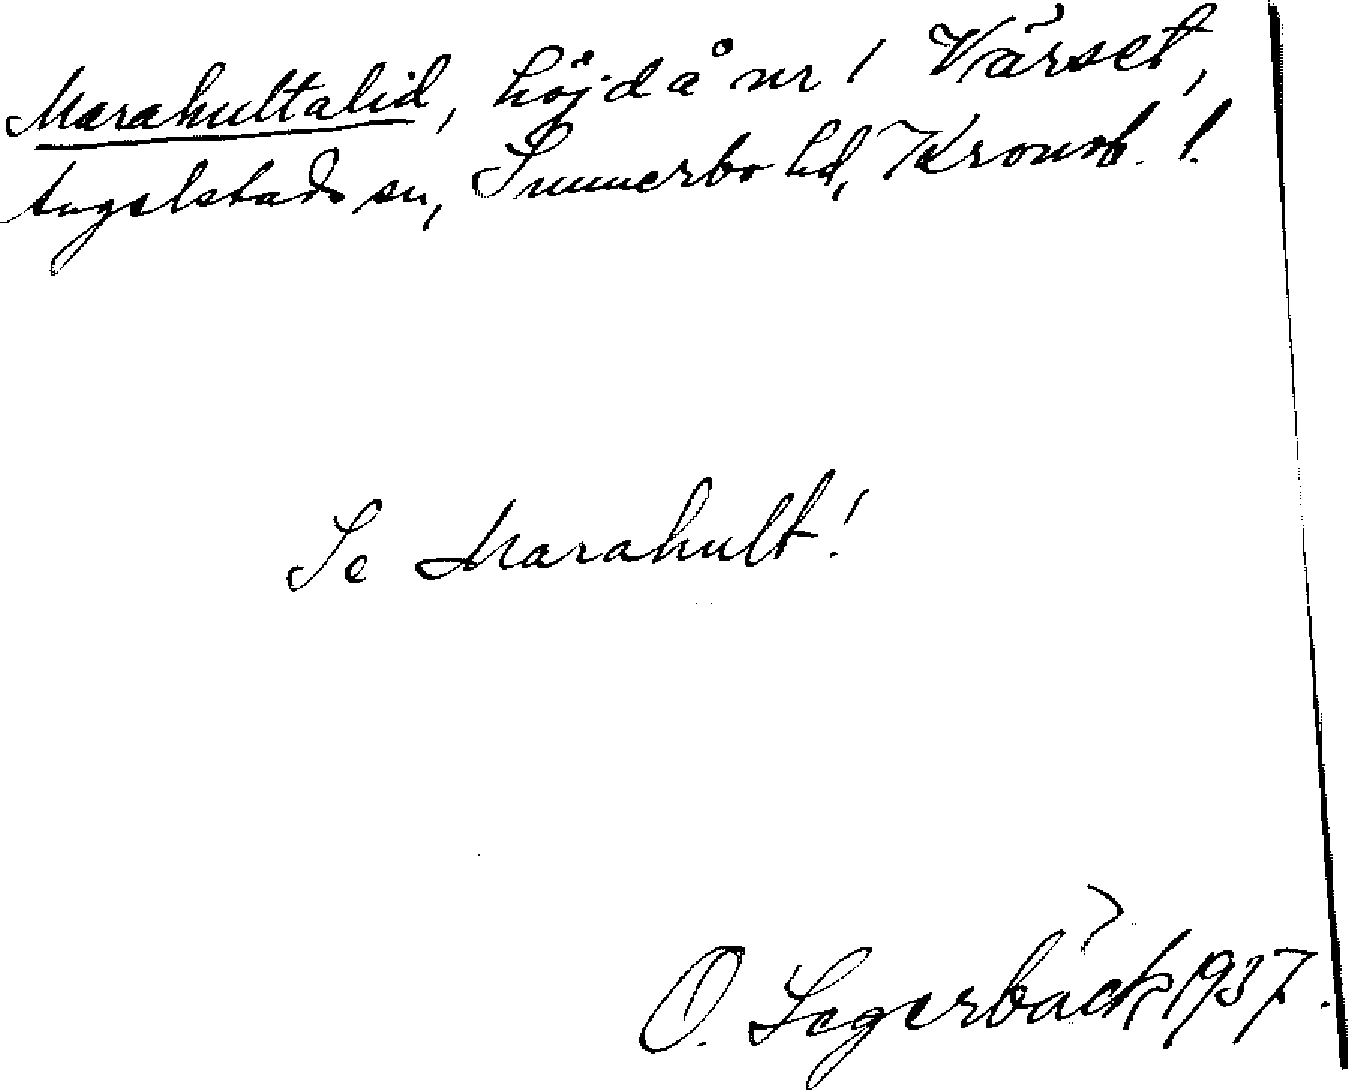 Marahultalid, höjd å nr 1 Värset,
Angelstads sn, Sunnerbo hd, Kronob. l.
Se Marahult!
O. Segerbäck 1937.